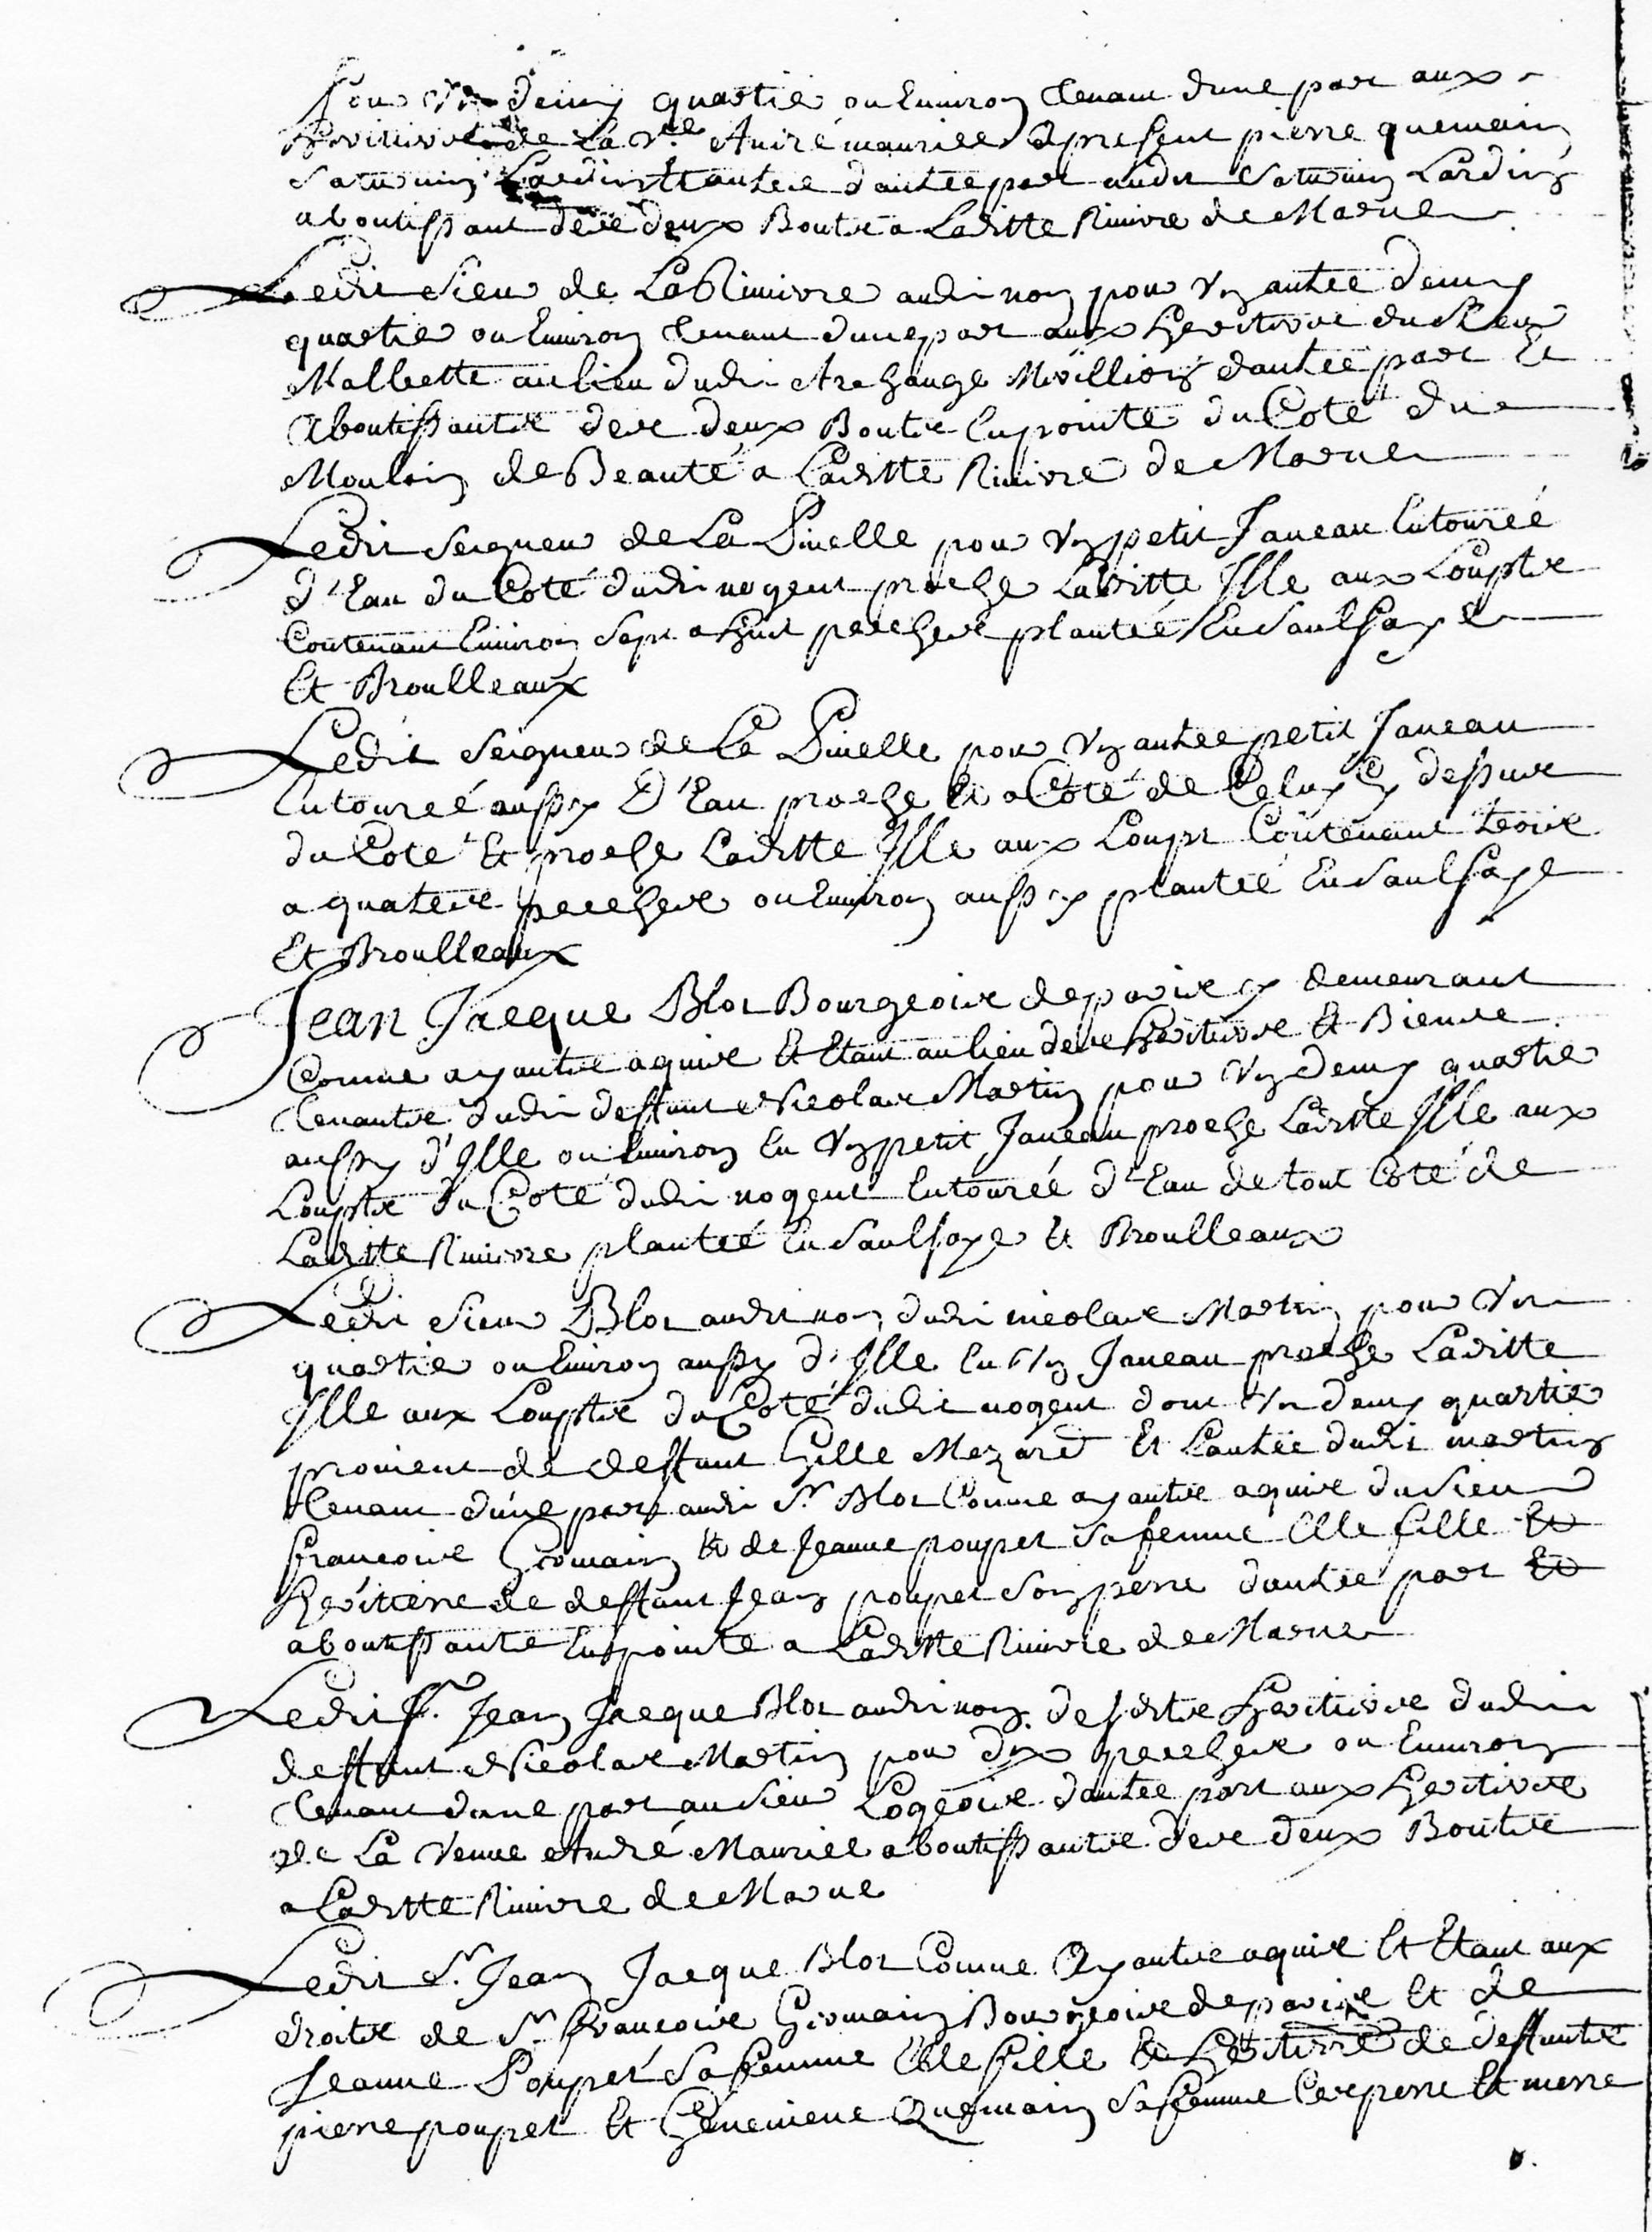 pour un demy quartier ou Environ tenant d'une part aux
heritiers de La Ve. André mauriel apresent pierre quemain
Saturnin Lardin d'autre part audit Saturnin Lardin
aboutissant des deux Bouts a Laditte Riviere de Marne
Ledit Sieur de La Riviere audit nom pour Un autre demy
quartier ou Environ tenant d'une part aux heritiers du Sieur
Mallette au lieu dudit Archange d'autre part Et
Aboutissants des deux Bouts En pointe du Coté du
Moulin de Beauté a Laditte Riviere de Marne
Ledit Seigneur de La Pinelle pour Un petit Janeau Entourée
d'Eau du Coté dudit nogent proche Laditte Isle aux Loupts
Contenant Environ Sept a huit perches plantée En Saulsaye
Et Broulleaux
Ledit Seigneur de La Pinelle pour Un autre petit Janeau
Entoureé aussy D'Eau proche Et a Coté de Celuy Cy dessus
du Coté Et proche Laditte Isle aux Loups Contenant trois
a quatres perches ou Environ aussy plantée En Saulsaye
Et Broulleaux
Jean Jacque Blot Bourgeois de paris y demeurant
Comme ayants aquis Et Etant au lieu des heritiers Et Biens
tenants dudit deffunt Nicolas Martin pour Un demy quartier
aussy d'Isle ou Environ En Un petit Janeau proche Laditte Isle aux
Loupts du Coté dudit nogent Entourée d'Eau de tout Coté de
Laditte Riviere plantée En Saulsaye Et Broulleaux
Ledit Sieur Blot audit nom dudit nicolas Martin pour Un
quartier ou Environ aussy d'Isle En Un Janeau proche Laditte
Isle aux Loupts du Coté dudit nogent dont Un demy quartier
provient de deffunt Gille Mezard Et L'autre dudit martin
tenant d'une part audit Sr. Blot Comme ayants aquis du Sieur
francois Germain Et de Jeanne poupet Sa femme Elle fille Et
heritiere de deffunt Jean poupet Son pere d'autre part Et
aboutissante En pointe a Laditte Riviere de Marne
Ledit Sr. Jean Jacque Blot audit nom desdits heritiers dudit
deffunt Nicolas Martin pour dix perches ou Environ
tenant d'une part au Sieur Logeois d'autre part aux heritiers
de La Veuve André Mauriel aboutissants des deux Bouts
a Laditte Riviere de Marne
Ledit Sr. Jean Jacque Blot Comme Ayants aquis Et Etant aux
droits de Sr. francois Germain Bourgeois de paris Et de
Jeanne Poupet Sa femme Elle fille Et heritiere de deffunts
pierre poupet Et Genevieve Quemain Sa femme Ces perre Et merre